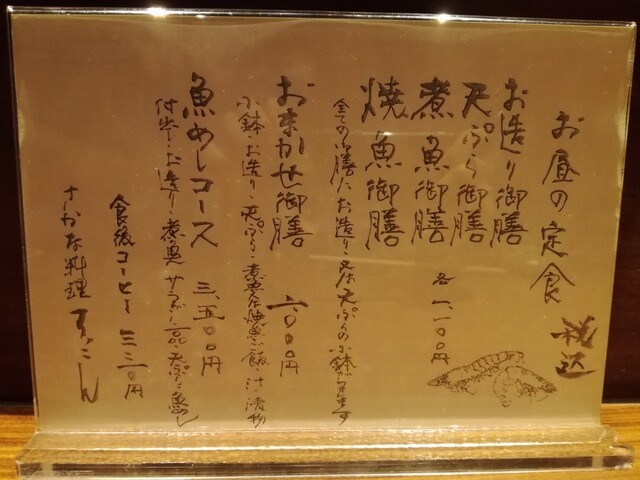 お昼の定食
税込
お造り御膳
天ぷら御膳
煮魚御膳
焼魚御膳
各 一、一〇〇円
全ての御膳にお造り又は天ぷらの小鉢が付きます
おまかせ御膳 二、〇〇〇円
小鉢・お造り・天ぷら・煮魚又は焼魚・ご飯・汁・漬物
魚めしコース 三、五〇〇円
付出し・お造り・煮魚・サラダ・一品・天ぷら・魚めし
食後コーヒー 三三〇円
さかな料理